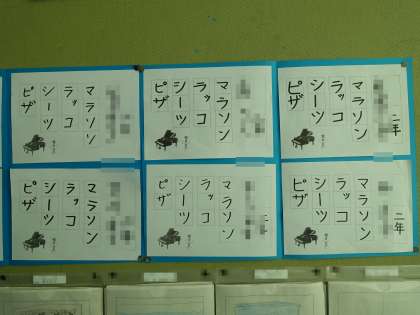 マラソン
ラッコ
シーツ
ピザ
マラソン
ラッコ
シーツ
ピザ
二年
マラソン
ラッコ
シーツ
ピザ
マラソン
ラッコ
シーツ
ピザ
二
マラソン
ラッコ
シーツ
ピザ
二年
マラソン
ラッコ
シーツ
ピザ